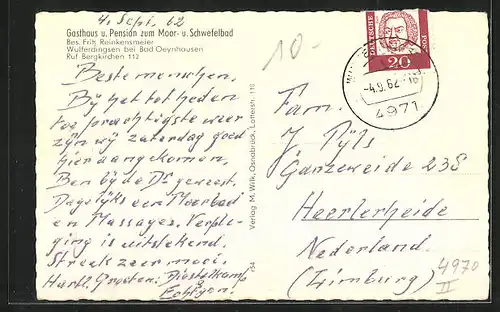 4. Sept. 62
Gasthaus u. Pension zum Moor- u. Schwefelbad
Bes. Fritz Reinkensmeier
Wulferdingsen bei Bad Oeynhausen
Ruf Bergkirchen 112
Beste menschen.
By het tot heden
toe prachtigste weer
zyn wy zaterdag goed
hier aangekomen.
Ben by de Dr geweest.
Dagelyks een Moorbad
en Massages. Verple-
ging is uitstekend.
Streek zeer mooi.
Hartl. Groeten.
Echtgen.
Verlag M. Wilk, Osnabrück, Lotterstr. 110
754
10-
DEUTSCHE POST
20
-4.9.62-18
4971
Fam.
J. Pyls
Ganzeweide 238
Heerlerheide
Nederland
(Limburg)
4970
II